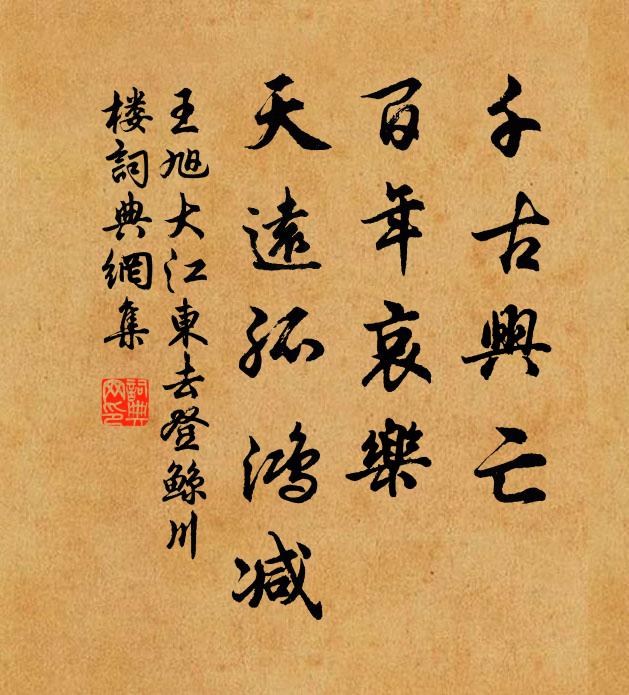 千古興亡
百年哀樂
天遠孤鴻減
王旭大江東去登鯨川
楼詞典網集
詞典网印